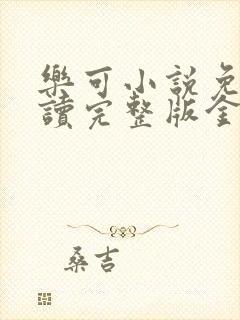 樂可小說免
讀完整版全
桑吉